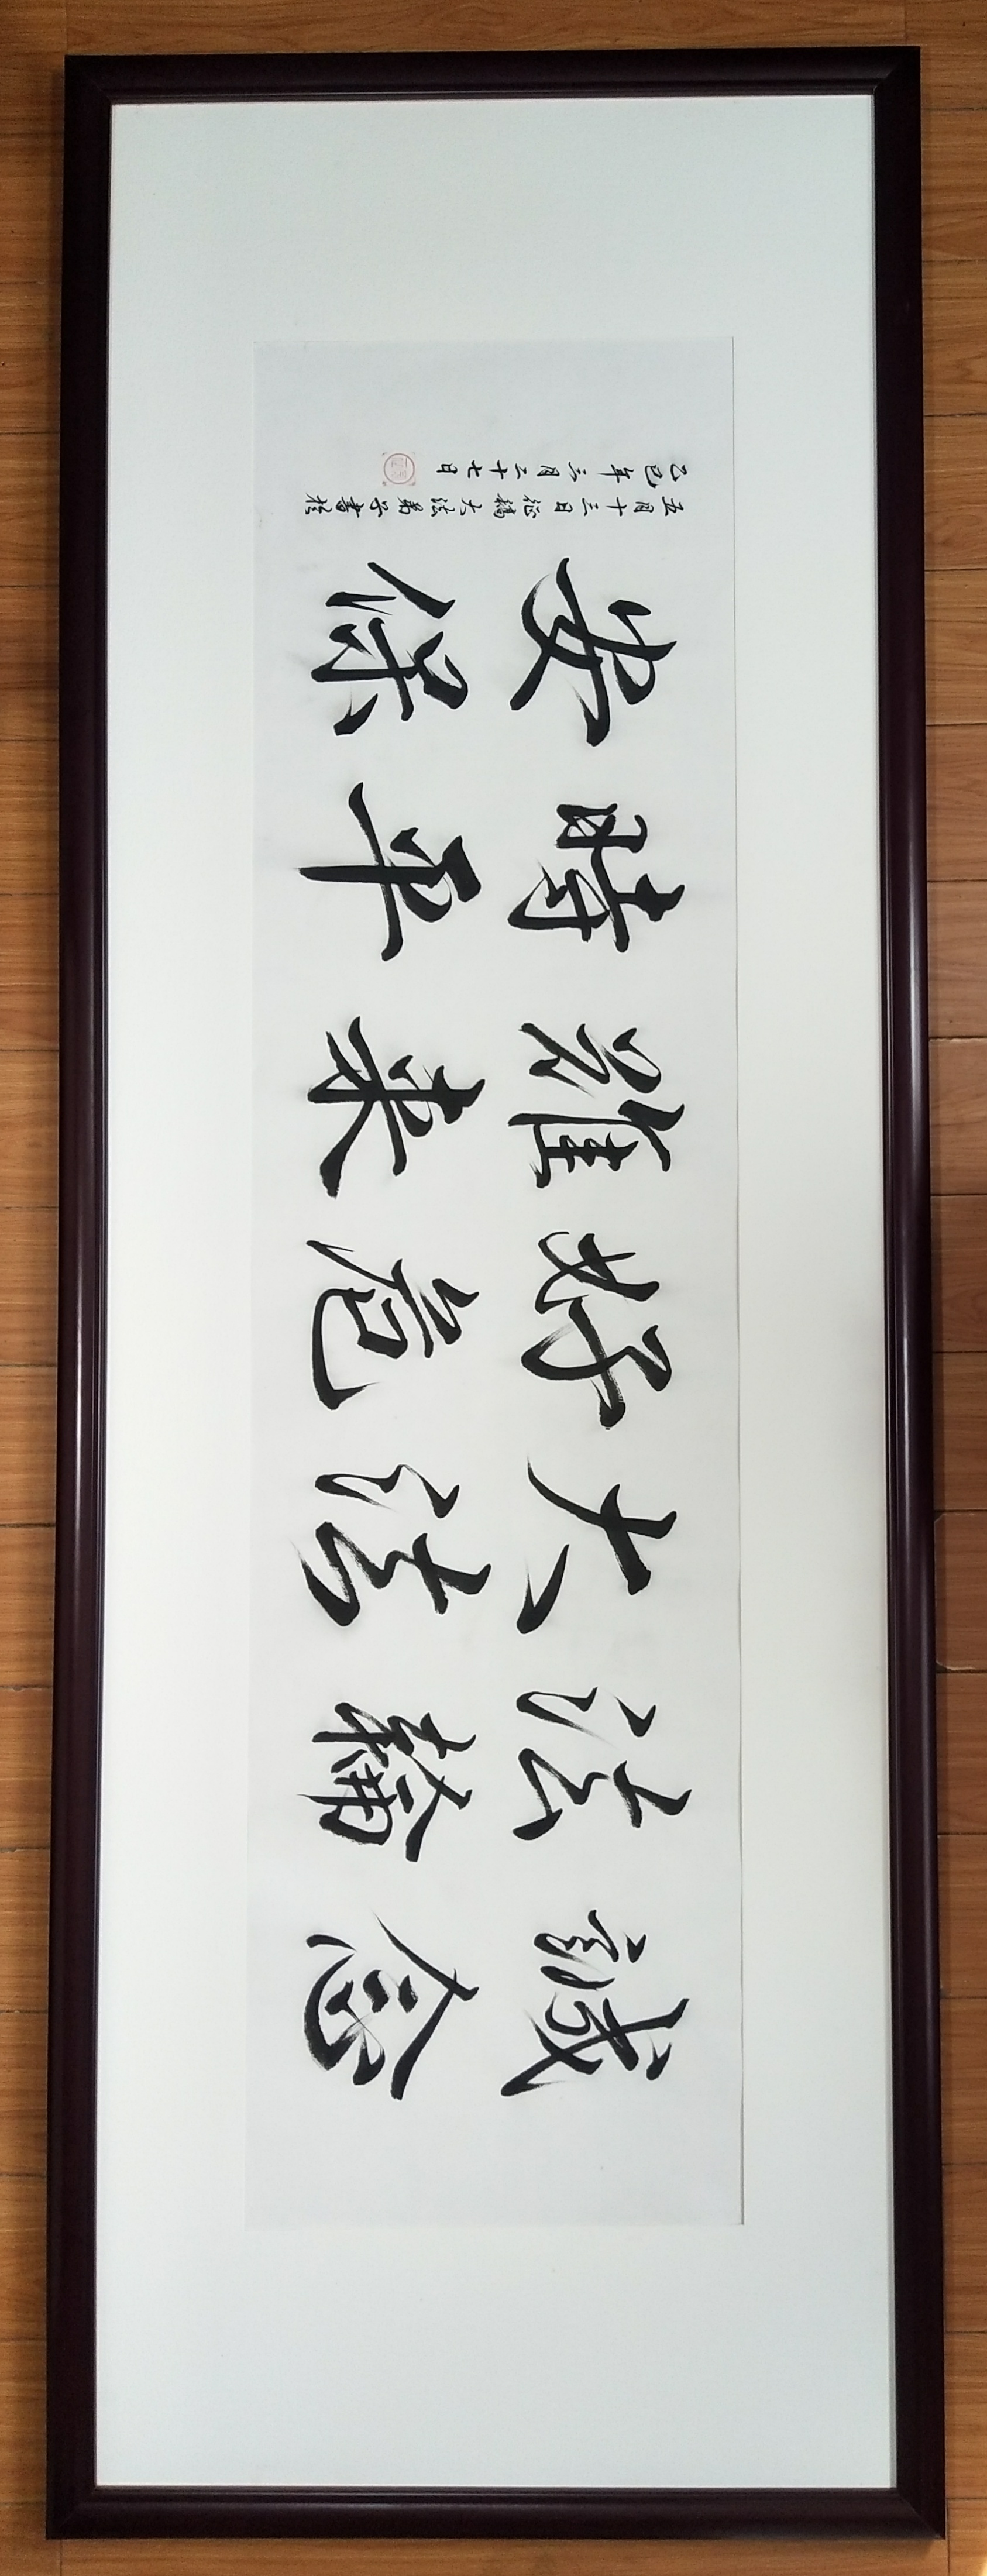 誠念
法輪
大法
好危
難來
時平
安保
五月十三日征稿大法弟子書於
乙巳年三月二十七日